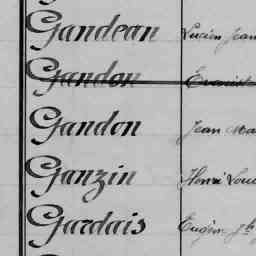 Gandean Lucien Jean
Gandon Evariste
Gandon Jean Ma
Ganzin Henri Loui
Gardais Eugène